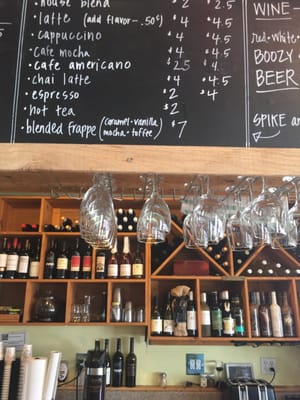 • house blend $2 $2.5
• latte (add flavor - .50¢) $4 $4.5
• cappuccino $4 $4.5
• cafe mocha $4 $4.5
• cafe americano $2.5 $4
• chai latte $4 $4.5
• espresso $2 $4
• hot tea $2
• blended frappe (caramel • vanilla mocha • toffee) $7
WINE
red • white •
BOOZY
BEER
SPIKE